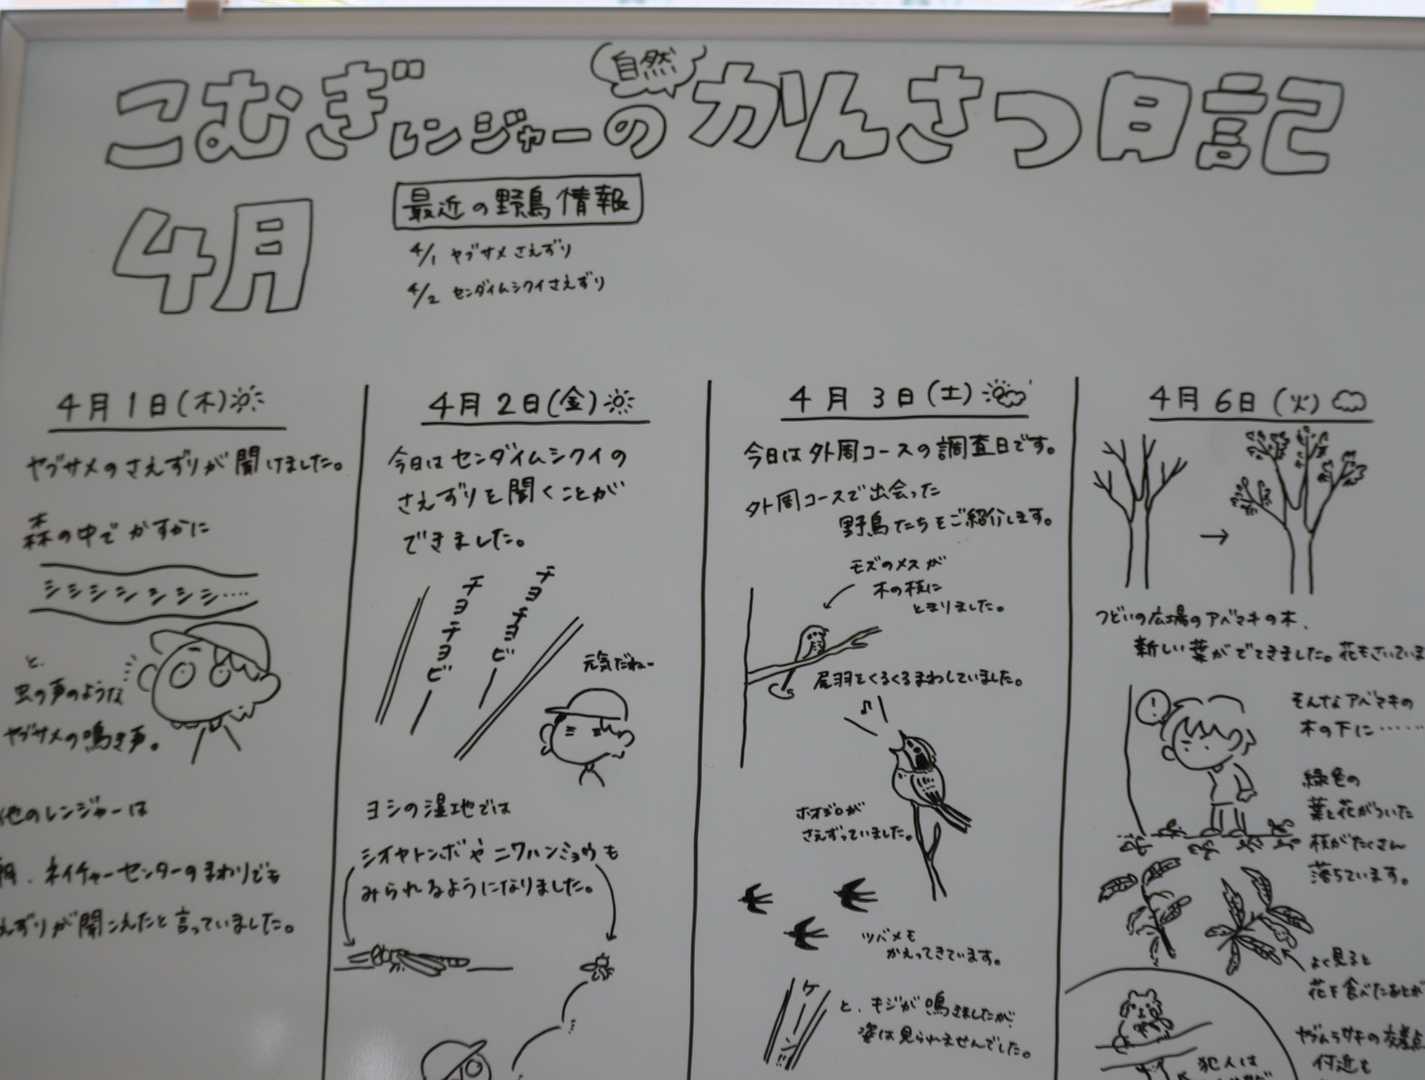 こむぎレンジャーの自然かんさつ日記
4月
最近の野鳥情報
4/1 ヤブサメ さえずり
4/2 センダイムシクイさえずり
4月1日(木)
ヤブサメのさえずりが聞けました。
森の中でかすかに
シシシシシシシシ‥‥
と、
虫の声のような
ヤブサメの鳴き声。
他のレンジャーは
朝、ネイチャーセンターのまわりでも
えずりが聞こえたと言っていました。
4月2日(金)
今日はセンダイムシクイの
さえずりを聞くことが
できました。
チヨチヨビー
チヨチヨビー
元気だねー
ヨシの湿地では
シオヤトンボやニワハンミョウも
みられるようになりました。
4月3日(土)
今日は外周コースの調査日です。
外周コースで出会った
野鳥たちをご紹介します。
モズのメスが
木の枝に
とまりました。
尾羽をくるくるまわしていました。
ホオジロが
さえずっていました。
ツバメも
かえってきています。
ケ
と、キジが鳴きましたが、
姿は見られませんでした。
4月6日(火)
つどいの広場のアベマキの木、
新しい葉がでてきました。花もさいていま
!
そんなアベマキの
木の下に……
緑色の
葉と花がついた
枝がたくさん
落ちています。
よく見ると
花を食べたあとが
ヤブムラサキの交差点
付近も
犯人は